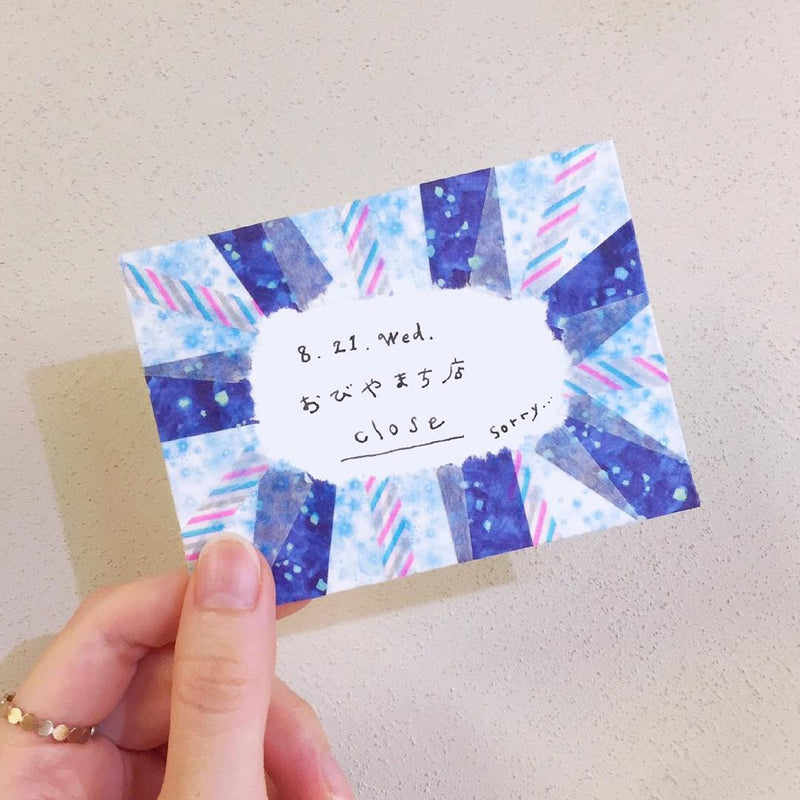 8.21.Wed.
おびやまち店
close
sorry...